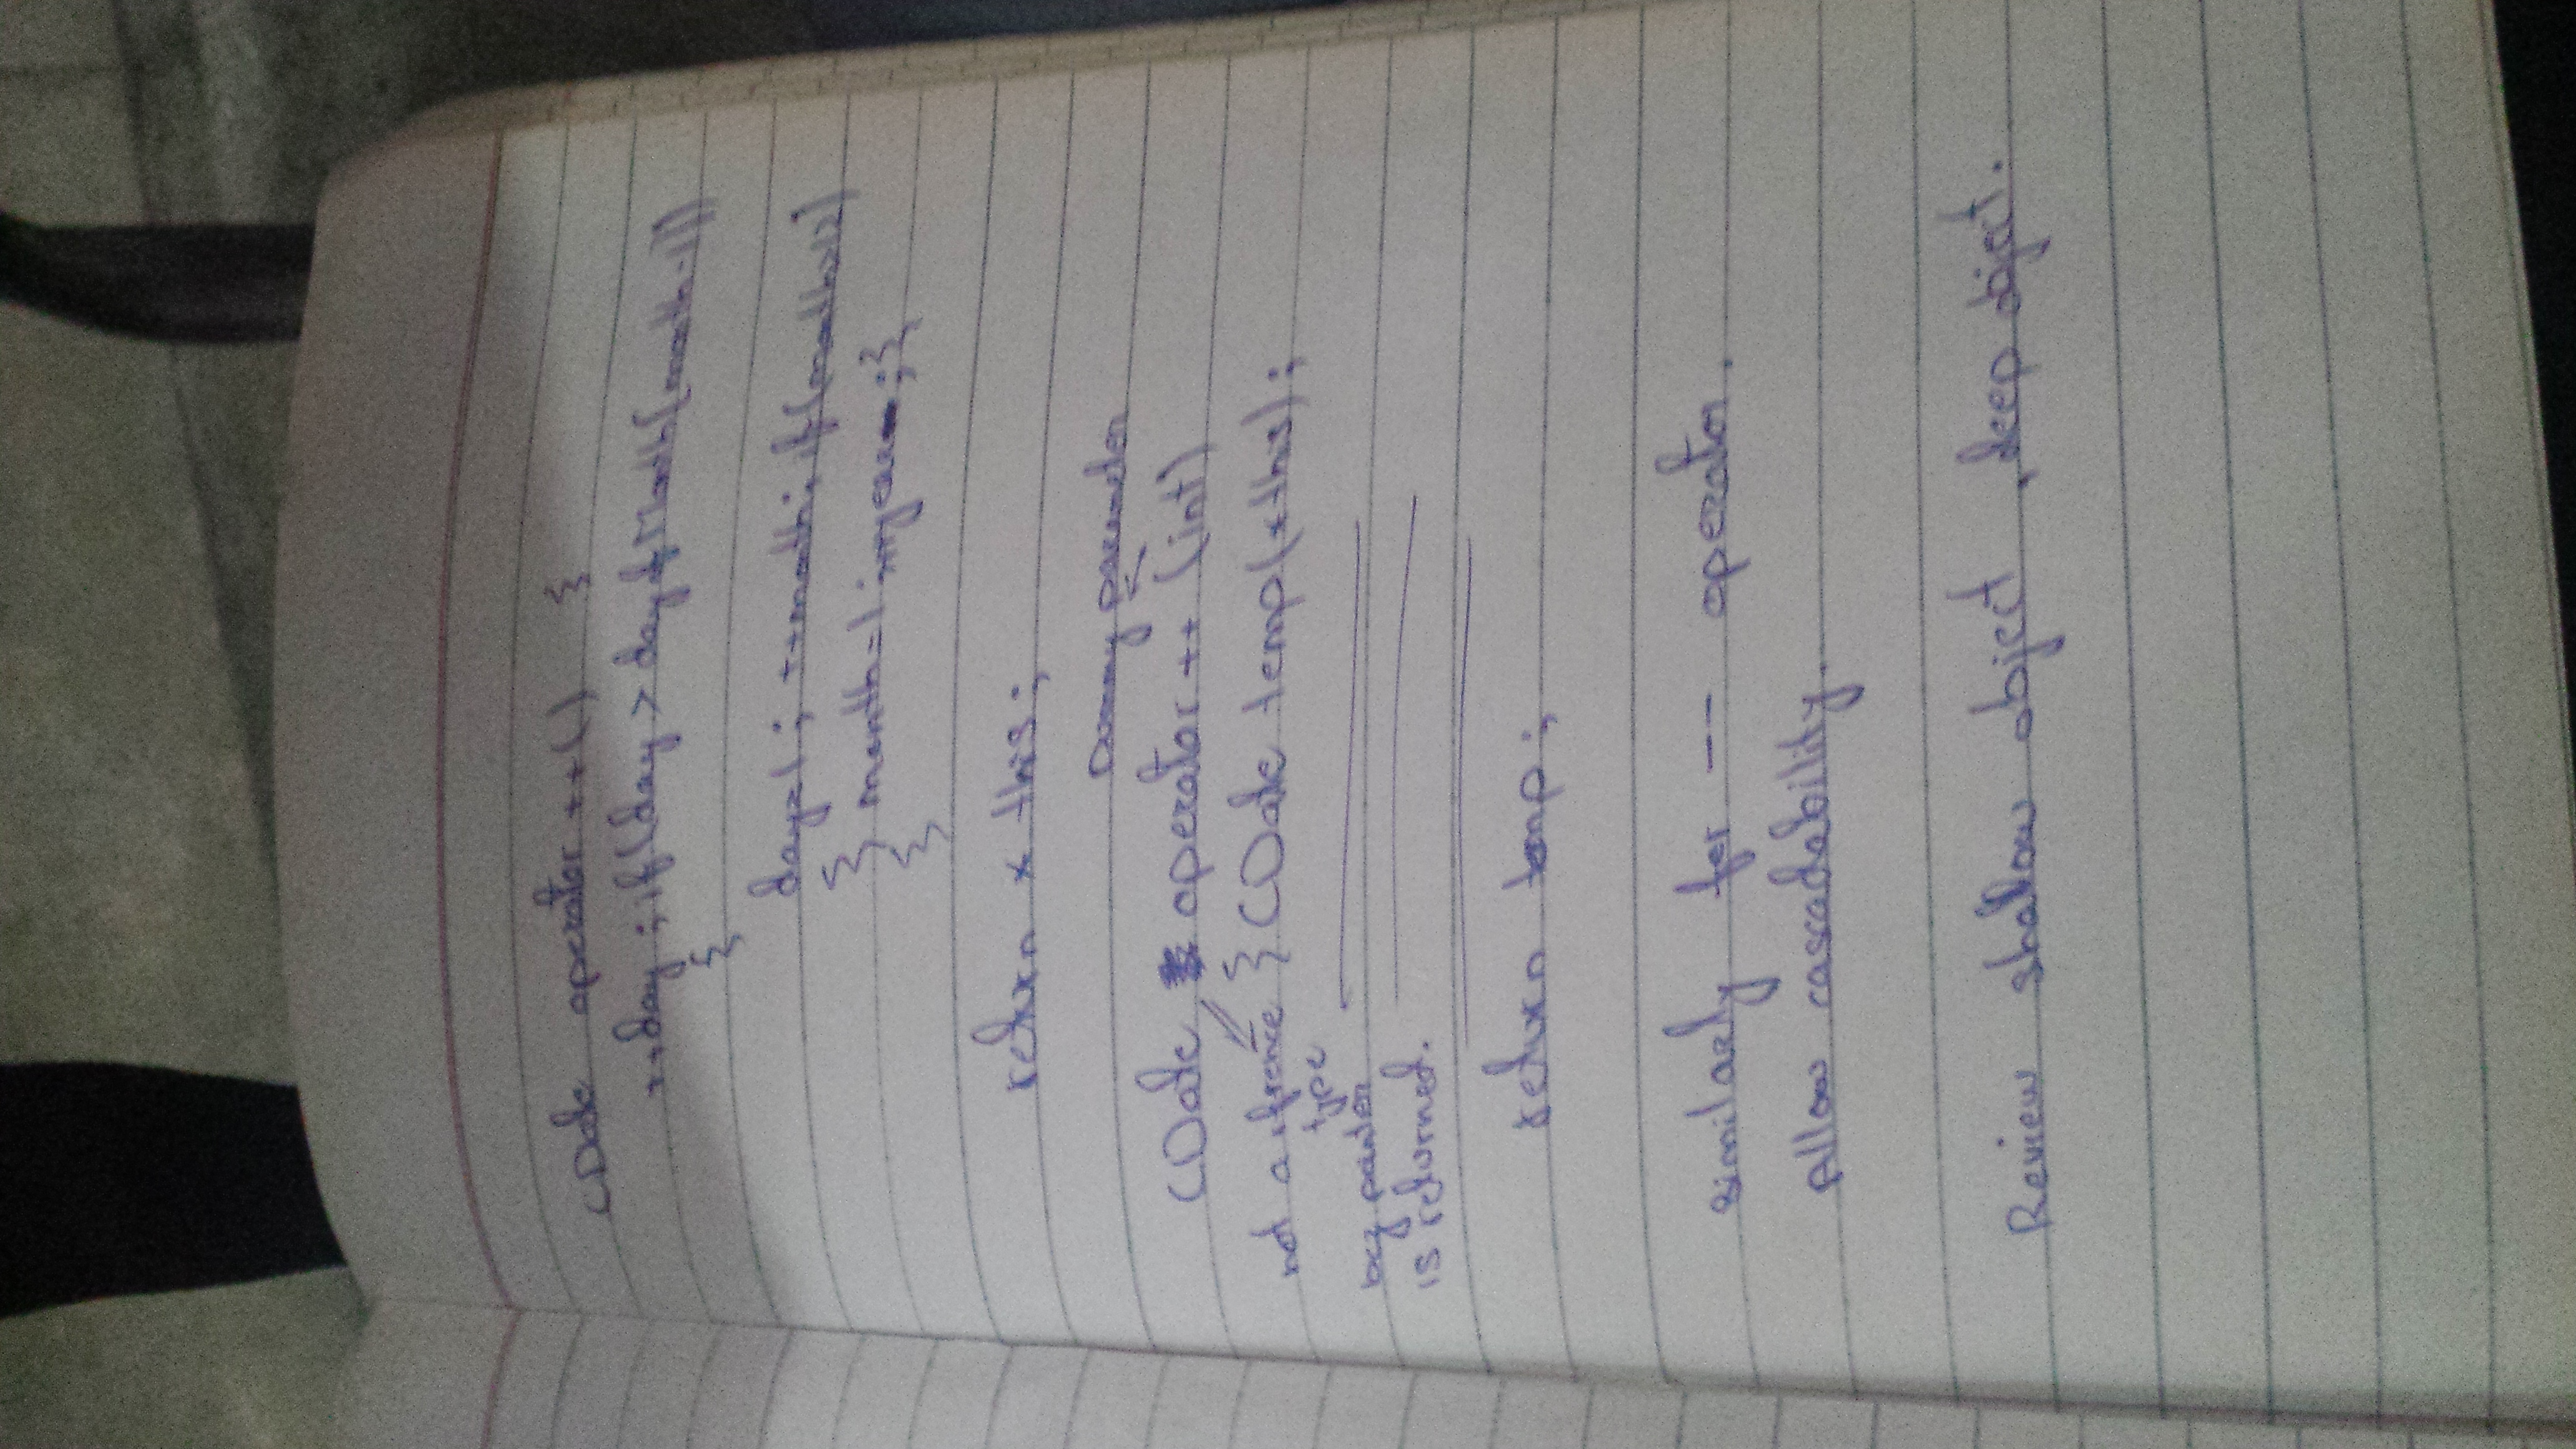 CDate operator ++() {
++day ; if (day > dayofMonth[month-1])
{
day=1 ; ++month; if (month>12)
{ month=1 ;++year ; }
}
return * this ;
Dummy parameter
CDate operator ++ (int)
not a rfrence { CDate temp(*this) ;
type
bcz pointer
is returned.
return temp ;
similarly for -- operator.
Allow cascadability.
Review shallow object , deep object.